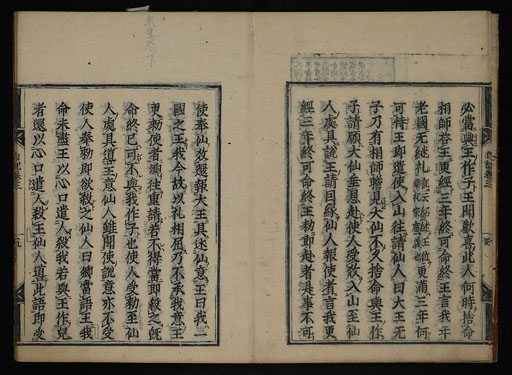 必當與王作子王聞歡喜此人何時捨命
相師答王更經三年終可命終王言我年
老國無繼礼更滿三年何
可待王即遣使入山往請仙人曰大王無
子乃有相師瞻見大仙不久捨命與王作
子請願大仙垂愍赴使人受教入山至仙
人處具說王請因緣仙人報使者言我更
經三年終可命終王勅即赴者是事不可
使奉仙教還報大王具述仙意王曰我一
國之王我今故以礼相屈乃不承我意王
更勅使者嘱往重請若不得當即殺之既
命終已可不與我作子也使人受勅至仙
人處具道王意仙人雖聞使說意亦不受
使人奉勅即欲殺之仙人曰卿當語王我
命未盡王以心口遣人殺我若與王作兒
者還以心口遣人殺王仙人導此語即受